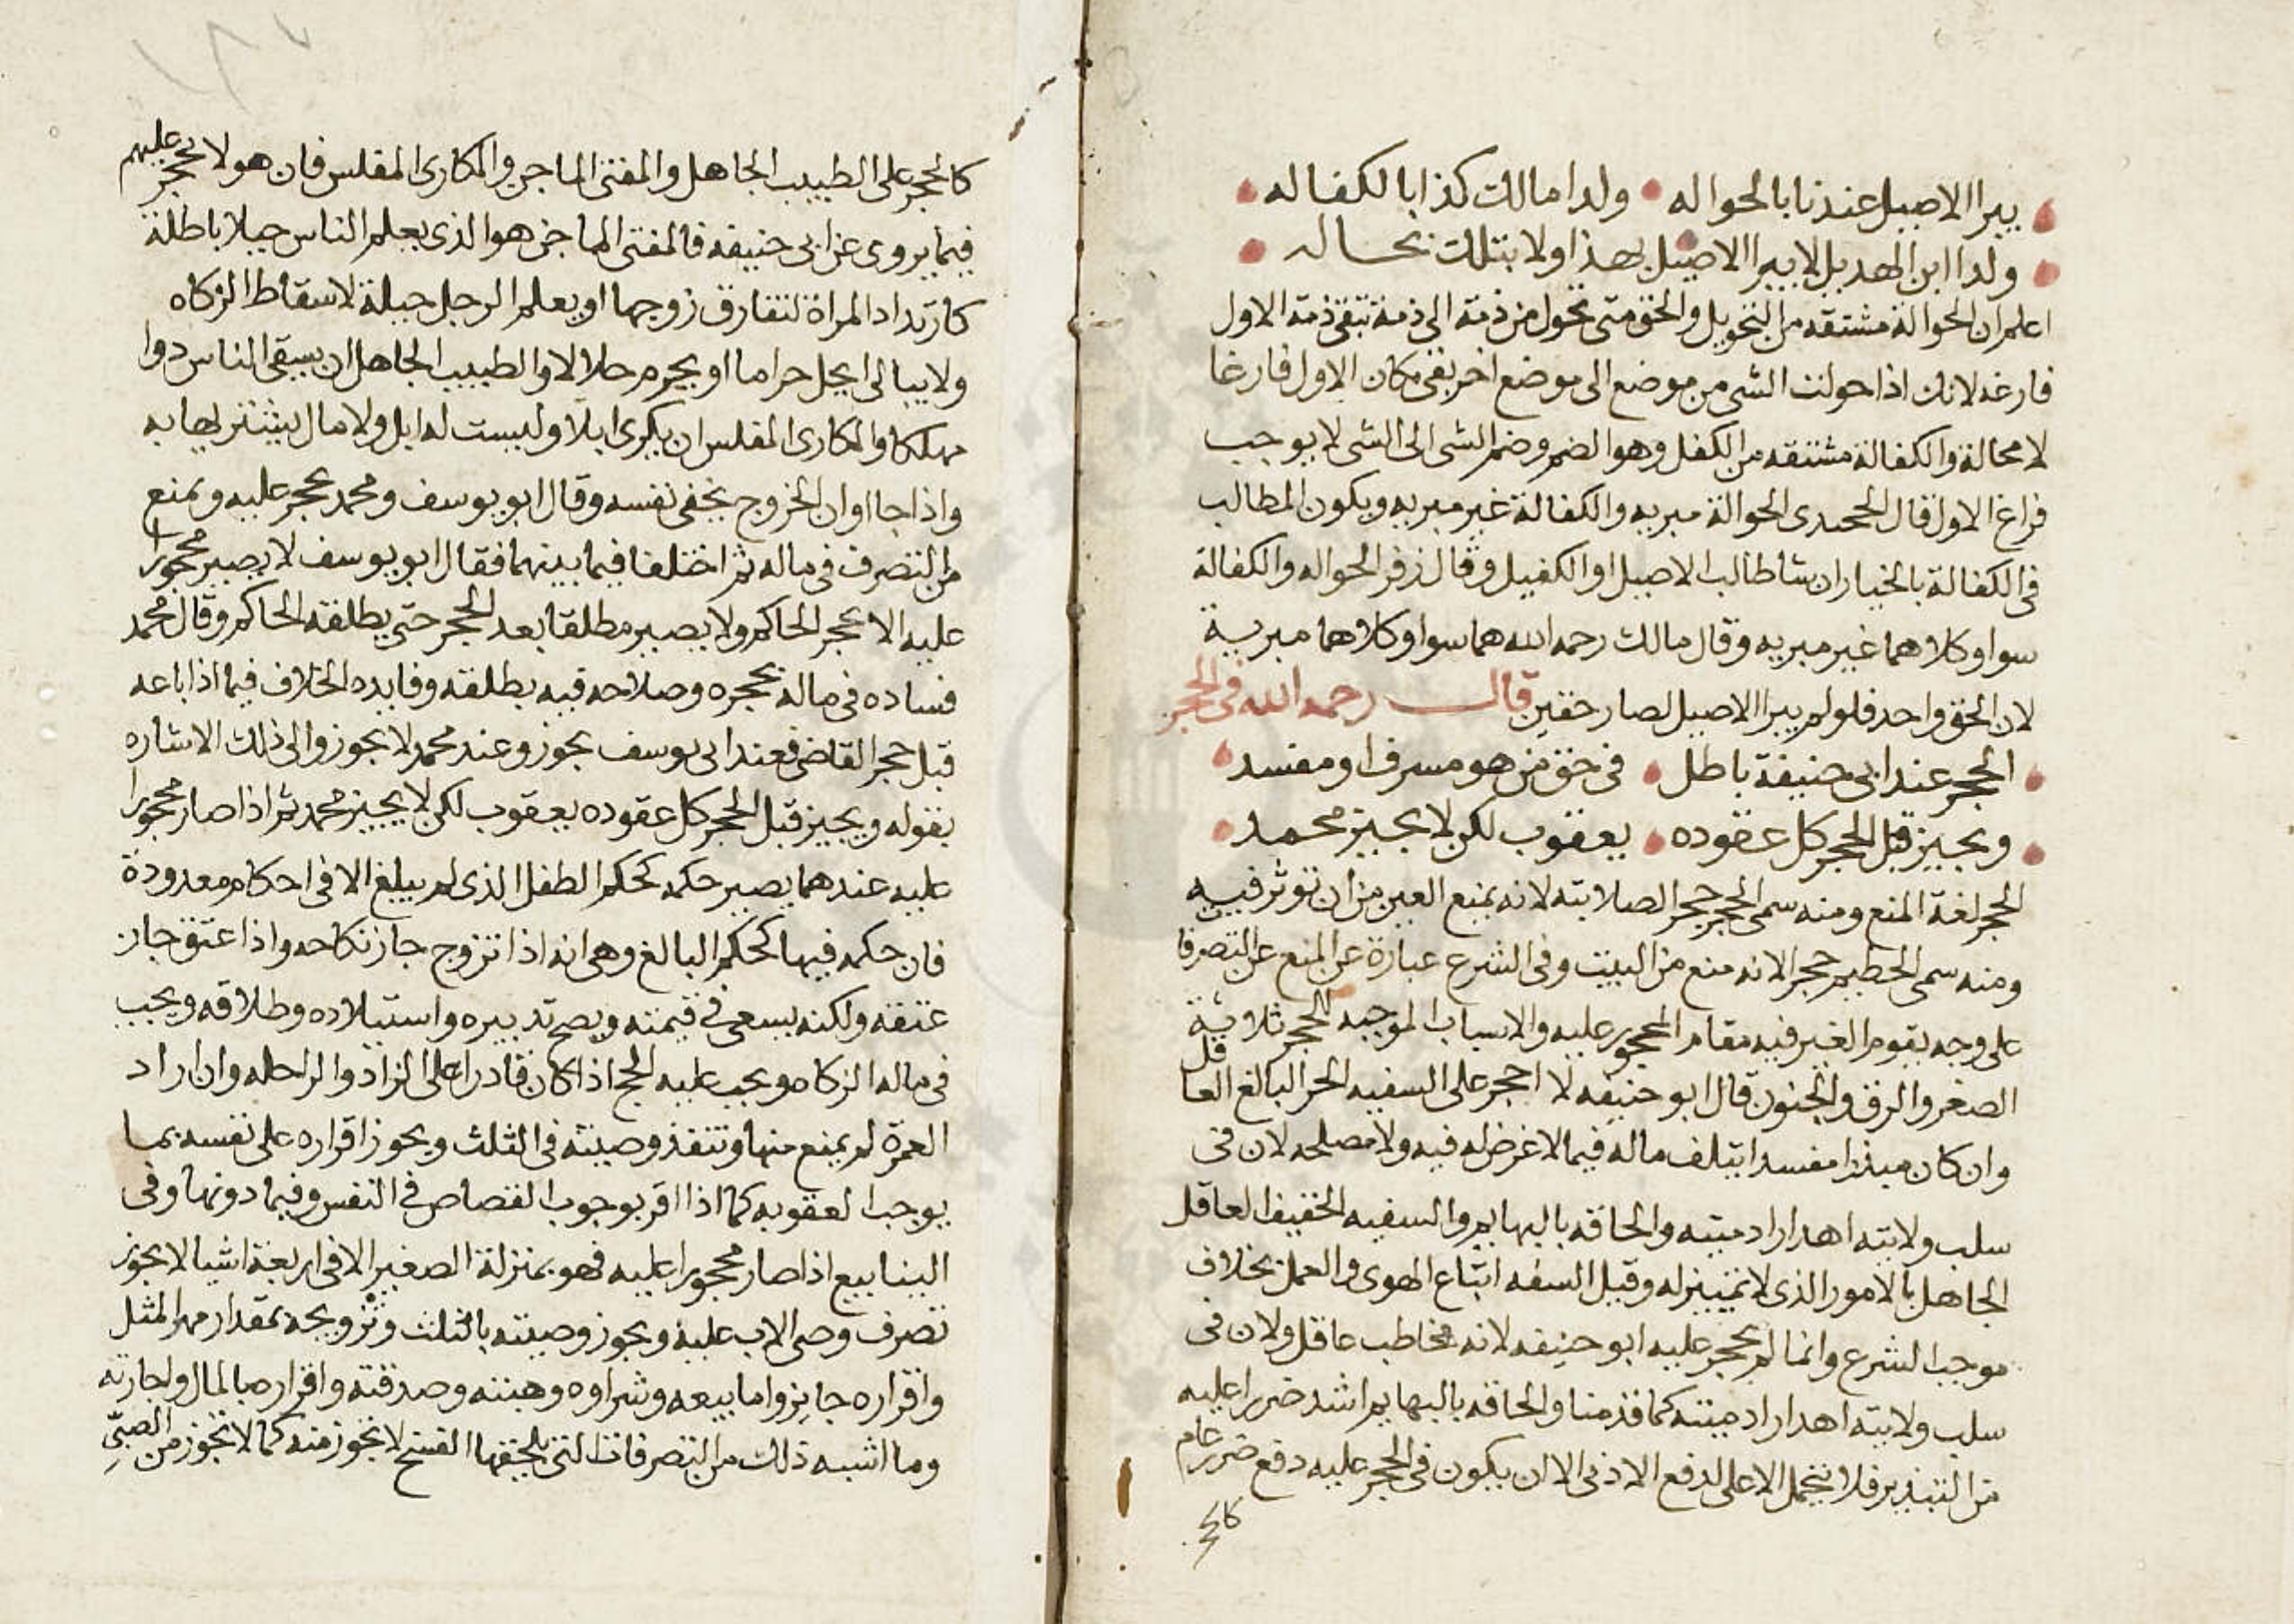 يبرا الاصيل عندنا بالحواله ولدا مالك كذا بالكفاله
ولدا ابن الهديل لا يبرا الاصيل بهذا ولا بتلك بحاله
اعلم ان الحوالة مشتقه من التحويل والحق متى تحول من ذمة الى ذمة تبقى ذمة الاول
فارغه لانك اذا حولت الشي من موضع الى موضع اخر بقى مكان الاول فارغا
لا محالة والكفالة مشتقه من الكفل وهو الضم وضم الشي الى الشي لا يوجب
فراغ الاول قال الجحندى الحوالة مبريه والكفالة غير مبريه ويكون المطالب
فى الكفالة بالخيار ان شا طالب الاصيل او الكفيل وقال زفر الحواله والكفالة
سوا وكلاهما غير مبريه وقال مالك رحمه الله هما سوا وكلاهما مبرية
لان الحق واحد فلو لم يبرا الاصيل لصار حقين قال رحمه الله فى الحجر
الحجر عند ابى حنيفة باطل فى حق من هو مسرف او مفسد
ويجيز قبل الحجر كل عقوده يعقوب لكن لا يجيز محمد
الحجر لغة المنع ومنه سمى الحجر حجر الصلابته لانه يمنع الغير من ان توثر فيه
ومنه سمى الحطيم حجر الانه منع من البيت وفى الشرع عبارة عن المنع عن التصرفا
على وجه يقوم الغير فيه مقام المحجور عليه والاسباب الموجبه للحجر ثلاثة
الصغر والرق والجنون قال ابو حنيفه لا احجر على السفيه الحر البالغ العاقل
وان كان مبذرا مفسدا يتلف ماله فيما لا غرض له فيه ولا مصلحه لان فى
سلب ولايته اهدارا دميته والحاقه بالبهايم والسفيه الخفيف العاقل
الجاهل بالامور الذى لا تمييز له وقيل السفه اتباع الهوى والعمل بخلاف
موجب الشرع وانما لم يحجر عليه ابو حنيفه لانه مخاطب عاقل ولان فى
سلب ولايته اهدارا دميته كما قدمنا والحاقه بالبهايم اشد ضررا عليه
من التبذير فلا يتحمل الاعلى لدفع الادنى الا ان يكون فى الحجر عليه دفع ضرر عام
كالحجر على الطبيب الجاهل والمفتى الماجن والمكارى المفلس فان هولا يحجر عليهم
فيما يروى عن ابى حنيفه فالمفتى الماجن هو الذى يعلم الناس حيلا باطلة
كارتداد المراة لتفارق زوجها او يعلم الرجل حيلة لاسقاط الزكاه
ولا يبالى ايحل حراما او يحرم حلالا والطبيب الجاهل ان يسقى الناس دوا
مهلكا والمكارى المفلس ان يكرى ابلا وليست له ابل ولا مال يشتريها به
واذا جا اوان الخروج يخفى نفسه وقال ابو يوسف ومحمد يحجر عليه ويمنع
من التصرف فى ماله ثم اختلفا فيما بينهما فقال ابو يوسف لا يصير محجورا
عليه الا بحجر الحاكم ولا يصير مطلقا بعد الحجر حتى يطلقه الحاكم وقال محمد
فساده فى ماله يحجره وصلاحه فيه يطلقه وفايده الخلاف فيما اذا باعه
قبل حجر القاضى فعند ابى يوسف يجوز وعند محمد لا يجوز والى ذلك الاشاره
بقوله ويجيز قبل الحجر كل عقوده يعقوب لكن لا يجيز محمد ثم اذا صار محجورا
عليه عندهما يصير حكمه كحكم الطفل الذى لم يبلغ الا فى احكام معدودة
فان حكمه فيها كحكم البالغ وهى انه اذا تزوج جاز نكاحه واذا عتق جاز
عتقه ولكنه يسعى فى قيمته ويصح تدبيره واستيلاده وطلاقه ويجب
فى ماله الزكاه ويجب عليه الحج اذا كان قادرا على الزاد والراحله وان اراد
العمرة لم يمنع منها وتنفذ وصيته فى الثلث ويجوز اقراره على نفسه بما
يوجب العقوبه كما اذا اقر بوجوب القصاص فى النفس وفيما دونها وفى
الينابيع اذا صار محجورا عليه فهو بمنزلة الصغير الا فى اربعة اشيا لا يجوز
تصرف وصى الاب عليه ويجوز وصيته بالثلث وتزويجه بمقدار مهر المثل
واقراره جايز واما بيعه وشراوه وهبته وصدقته واقراره بالمال واجارته
وما اشبه ذلك من التصرفات التى يلحقها الفسخ لا تجوز منه كما لا تجوز من الصبى